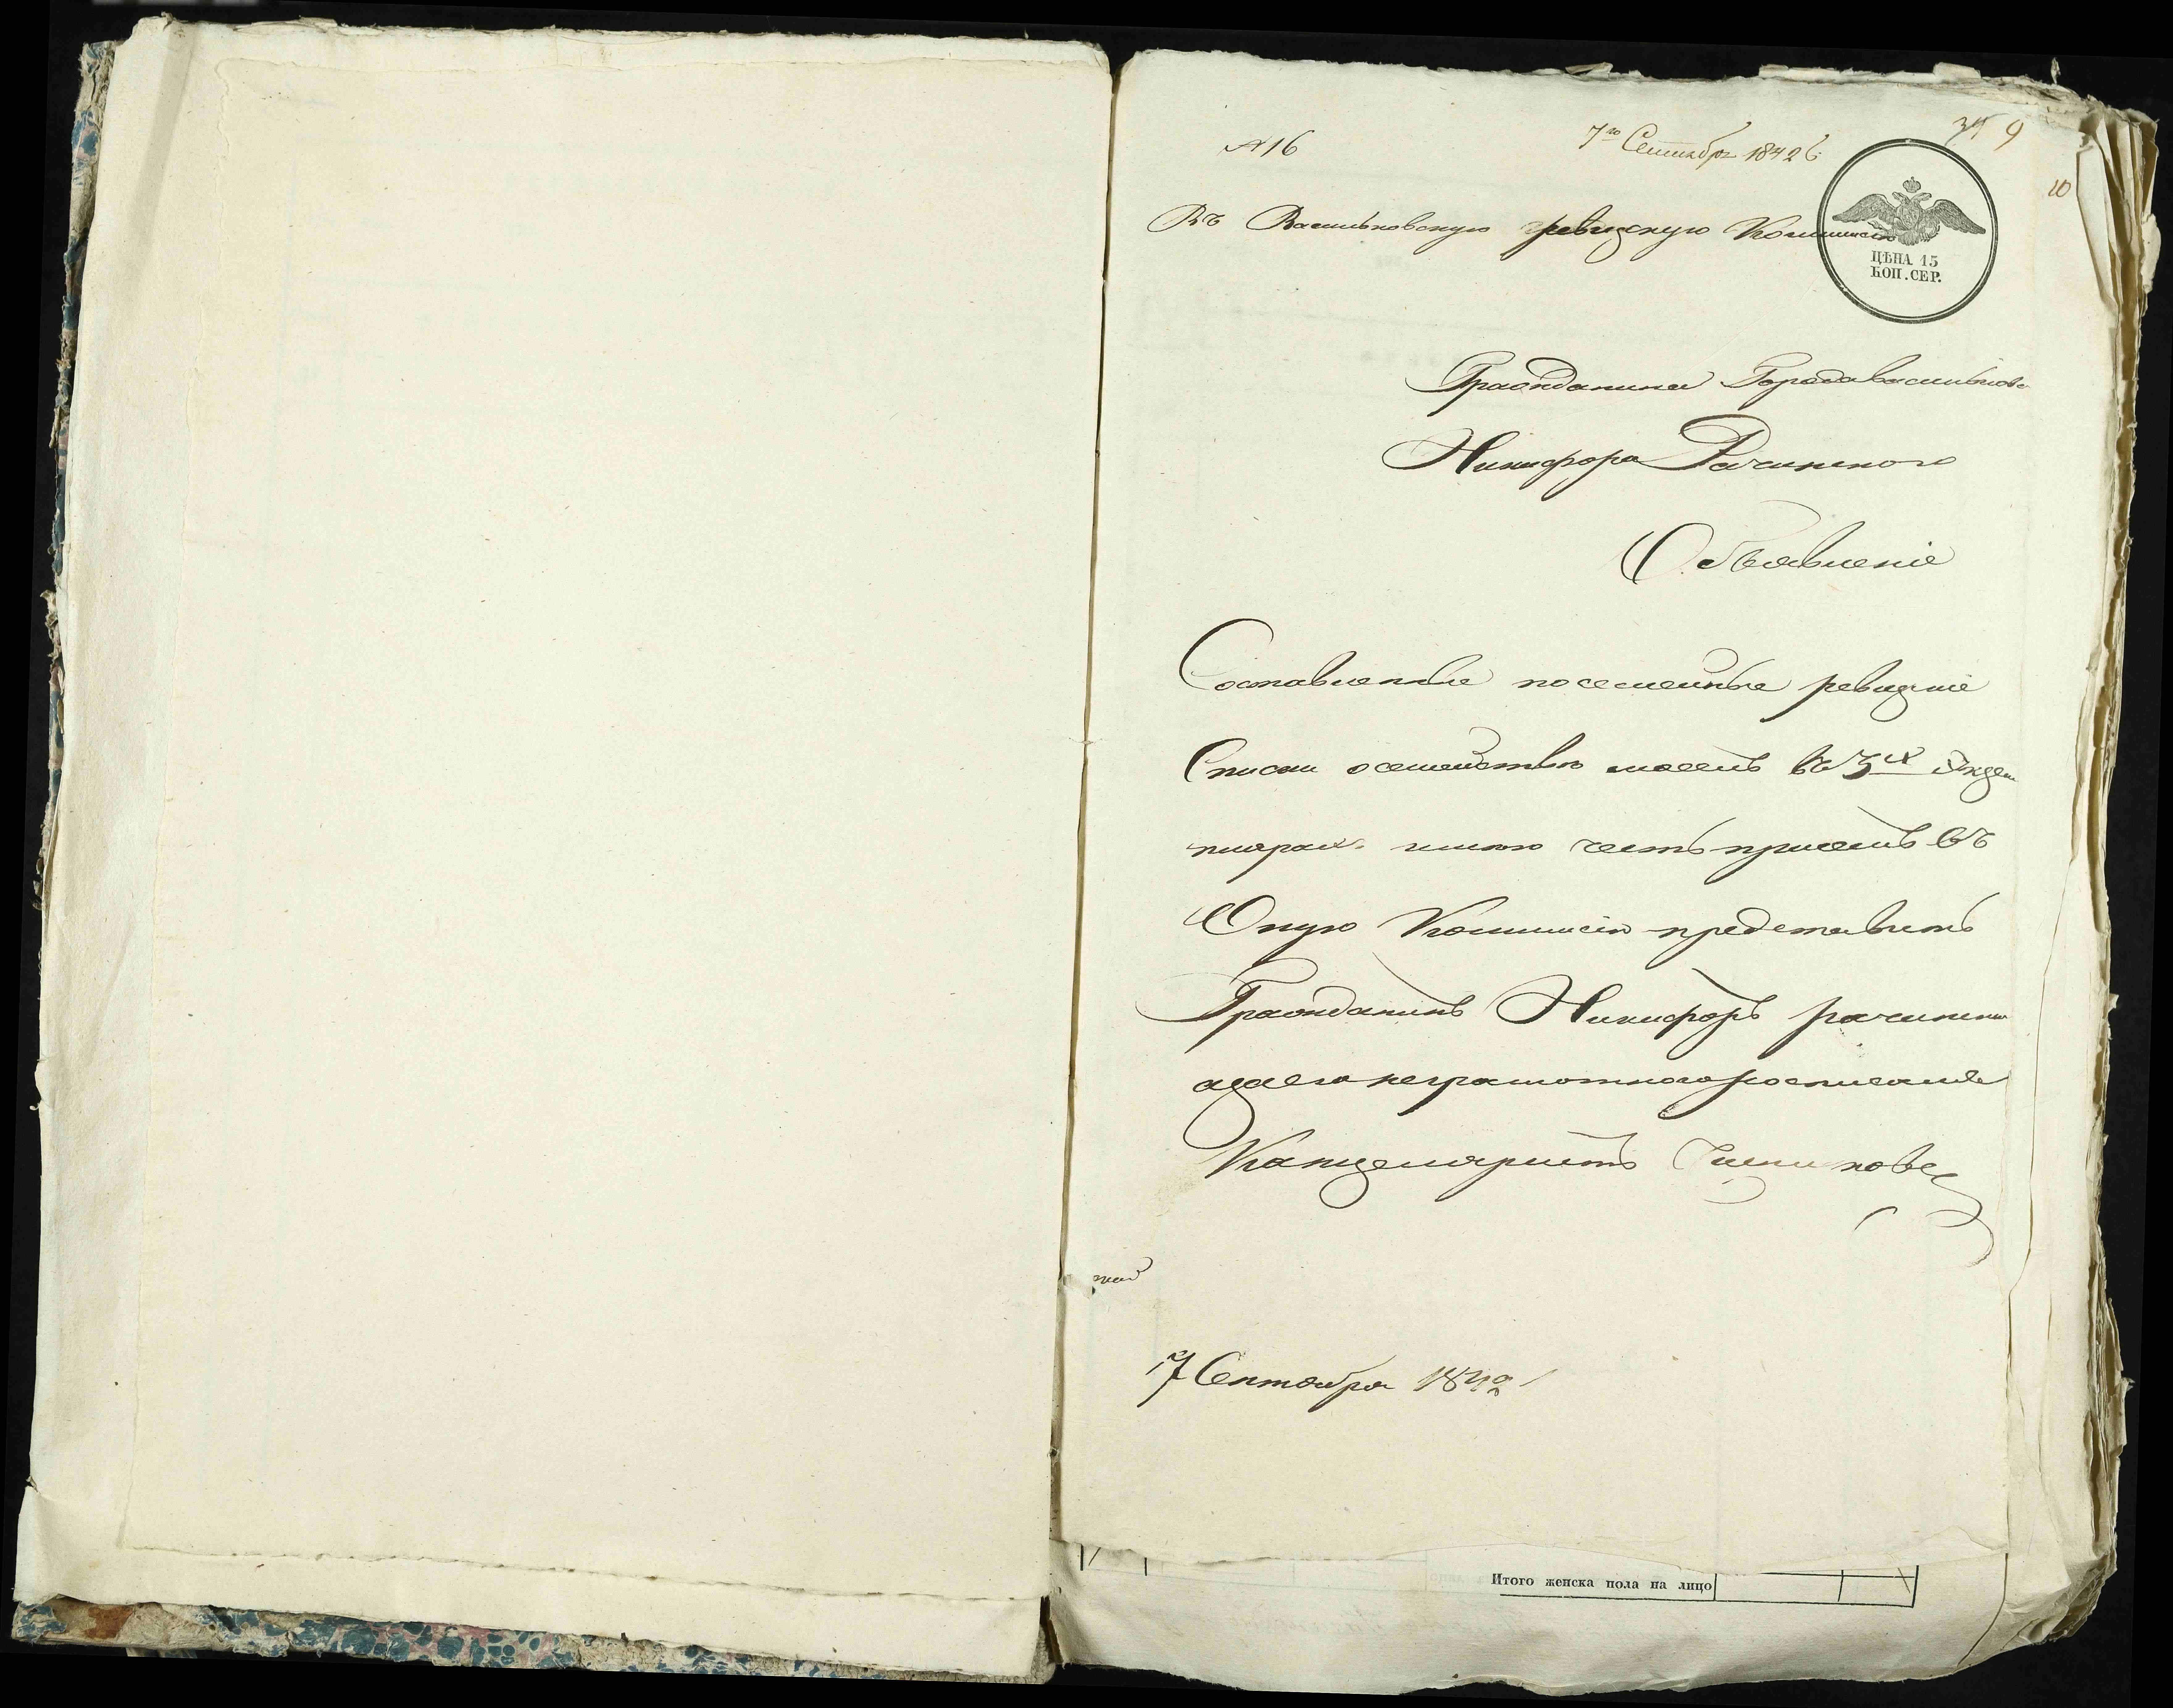 № 16
7го Сентября 1842 г.
9
10
Въ Васильковскую ревизкую Коммисію
ЦѢНА 15
КОП. СЕР.
Гражданина Города Василькова
Никифора Рачинского
Объявленіе
Составленные посемейные ревизкіе
Списки о семействе моемъ въ 3хъ Экзем
плярах. имею честь при семъ въ
Оную Коммисію представить
Гражданинъ Никифоръ рачински
а за его неграмотного росписался
Канцеляристъ
7 Сентября 1842
Итого женска пола на лицо